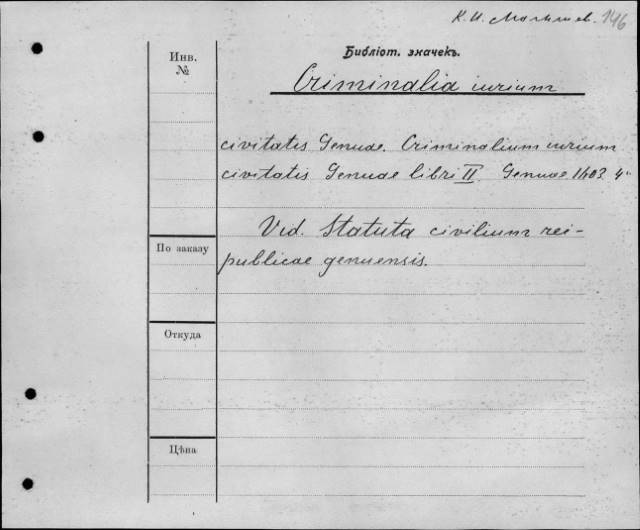 К. И. Малышев. 146
Библіот. значекъ.
Инв.
№
Criminalia iurium
civitatis Genuae. Criminalium iurium
civitatis Genuae libri II. Genuae 1603 4°
Vid. Statuta civilium rei-
По заказу
publicae genuensis.
Откуда
Цѣна